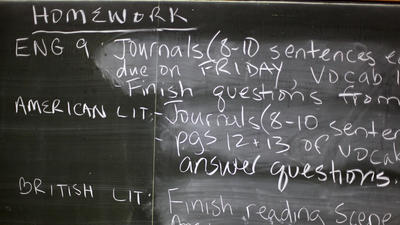 HOMEWORK
ENG 9: Journals (8-10 sentences
due on FRIDAY, Vocab
Finish questions from
AMERICAN LIT: - Journals (8-10
- pgs 12+13 of vocab
answer questions.
BRITISH LIT: Finish reading Scene